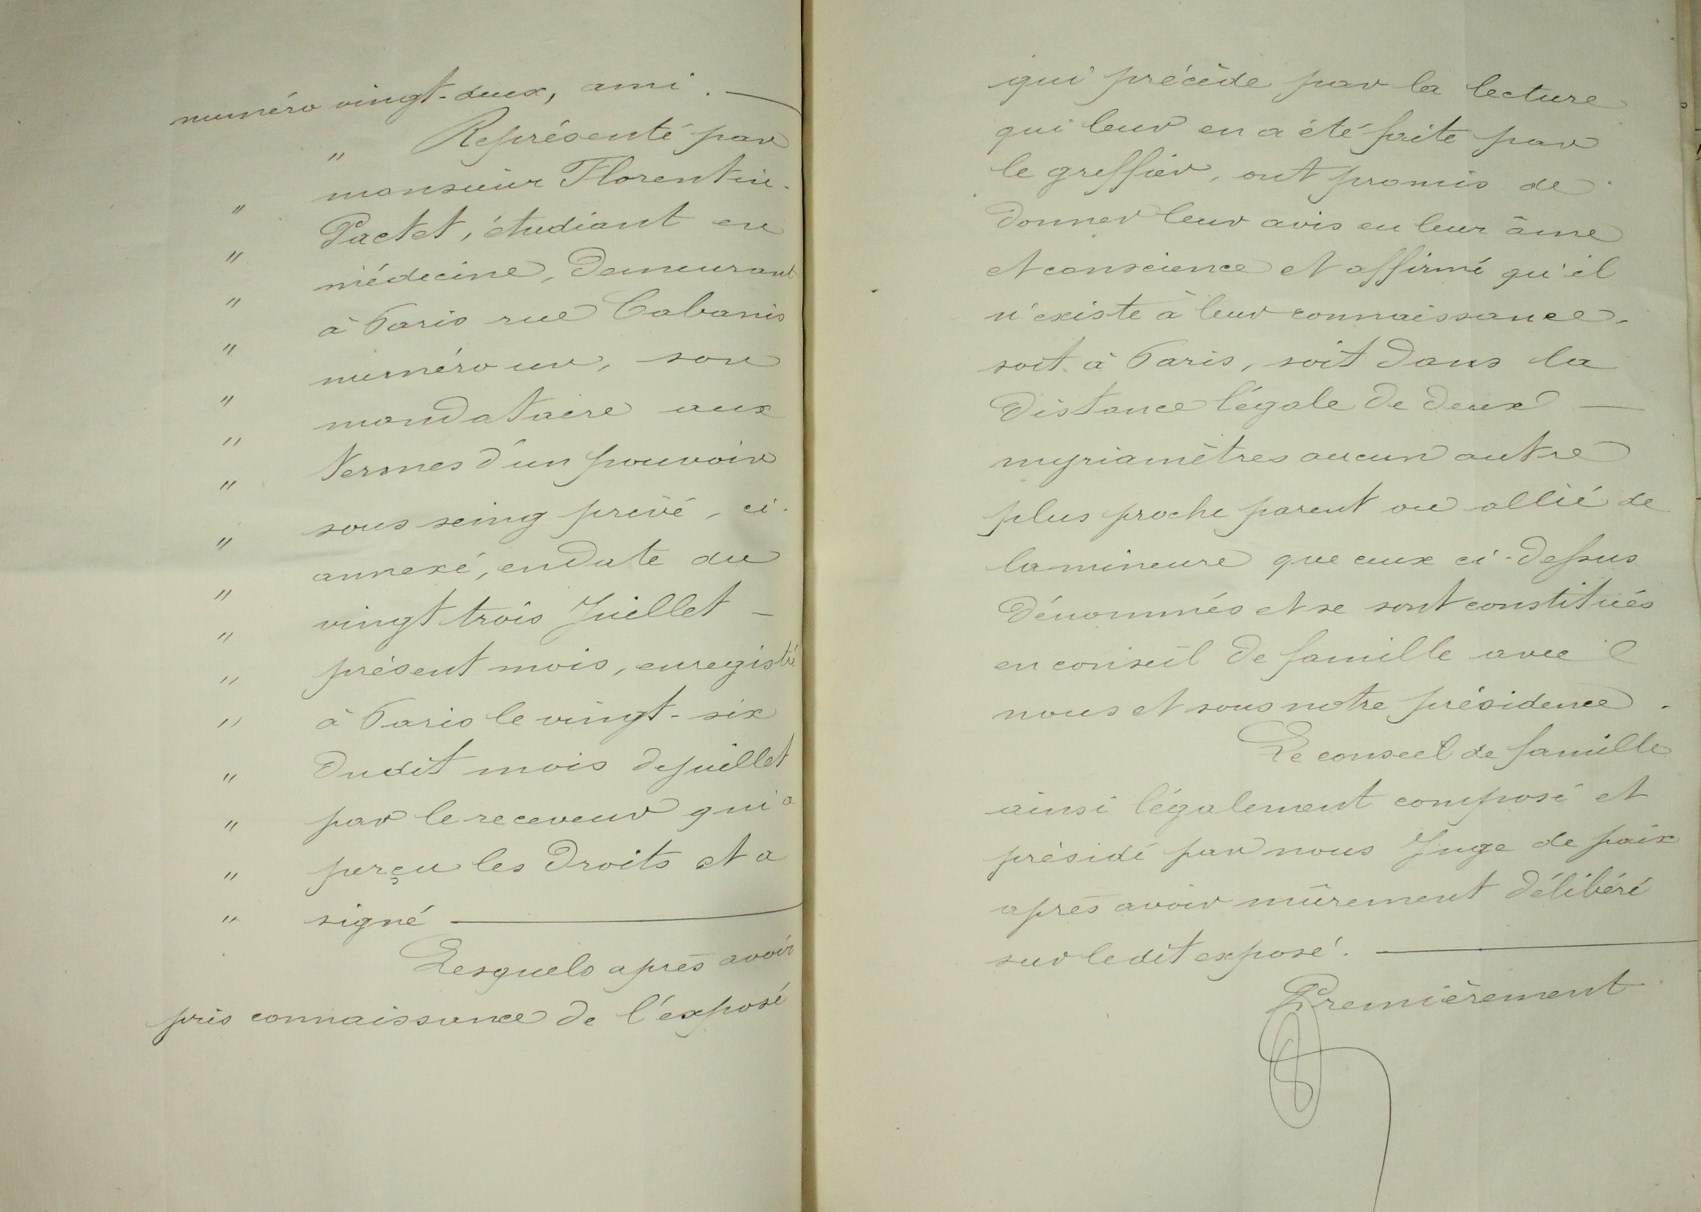 numéro vingt-deux, ami. —
" Représenté par
" monsieur Florentin
" Pactet, étudiant en
" médecine, demeurant
" à Paris rue Cabanis
" numéro un, son
" mandataire aux
" termes d'un pouvoir
" sous seing privé, ci-
" annexé, en date du
" vingt trois Juillet —
" présent mois, enregistré
" à Paris le vingt-six
" dudit mois de juillet
" par le receveur qui a
" perçu les droits et a
" signé —
Lesquels après avoir
pris connaissance de l'exposé
qui précède par la lecture
qui leur en a été faite par
le greffier, ont promis de
donner leur avis en leur âme
et conscience et affirmé qu'il
n'existe à leur connaissance,
soit à Paris, soit dans la
distance légale de deux —
myriamètres aucun autre
plus proche parent ou allié de
la mineure que eux ci-dessus
dénommés et se sont constitués
en conseil de famille avec
nous et sous notre présidence.
Le conseil de famille
ainsi légalement composé et
présidé par nous Juge de paix
après avoir mûrement délibéré
sur ledit exposé. —
Premièrement